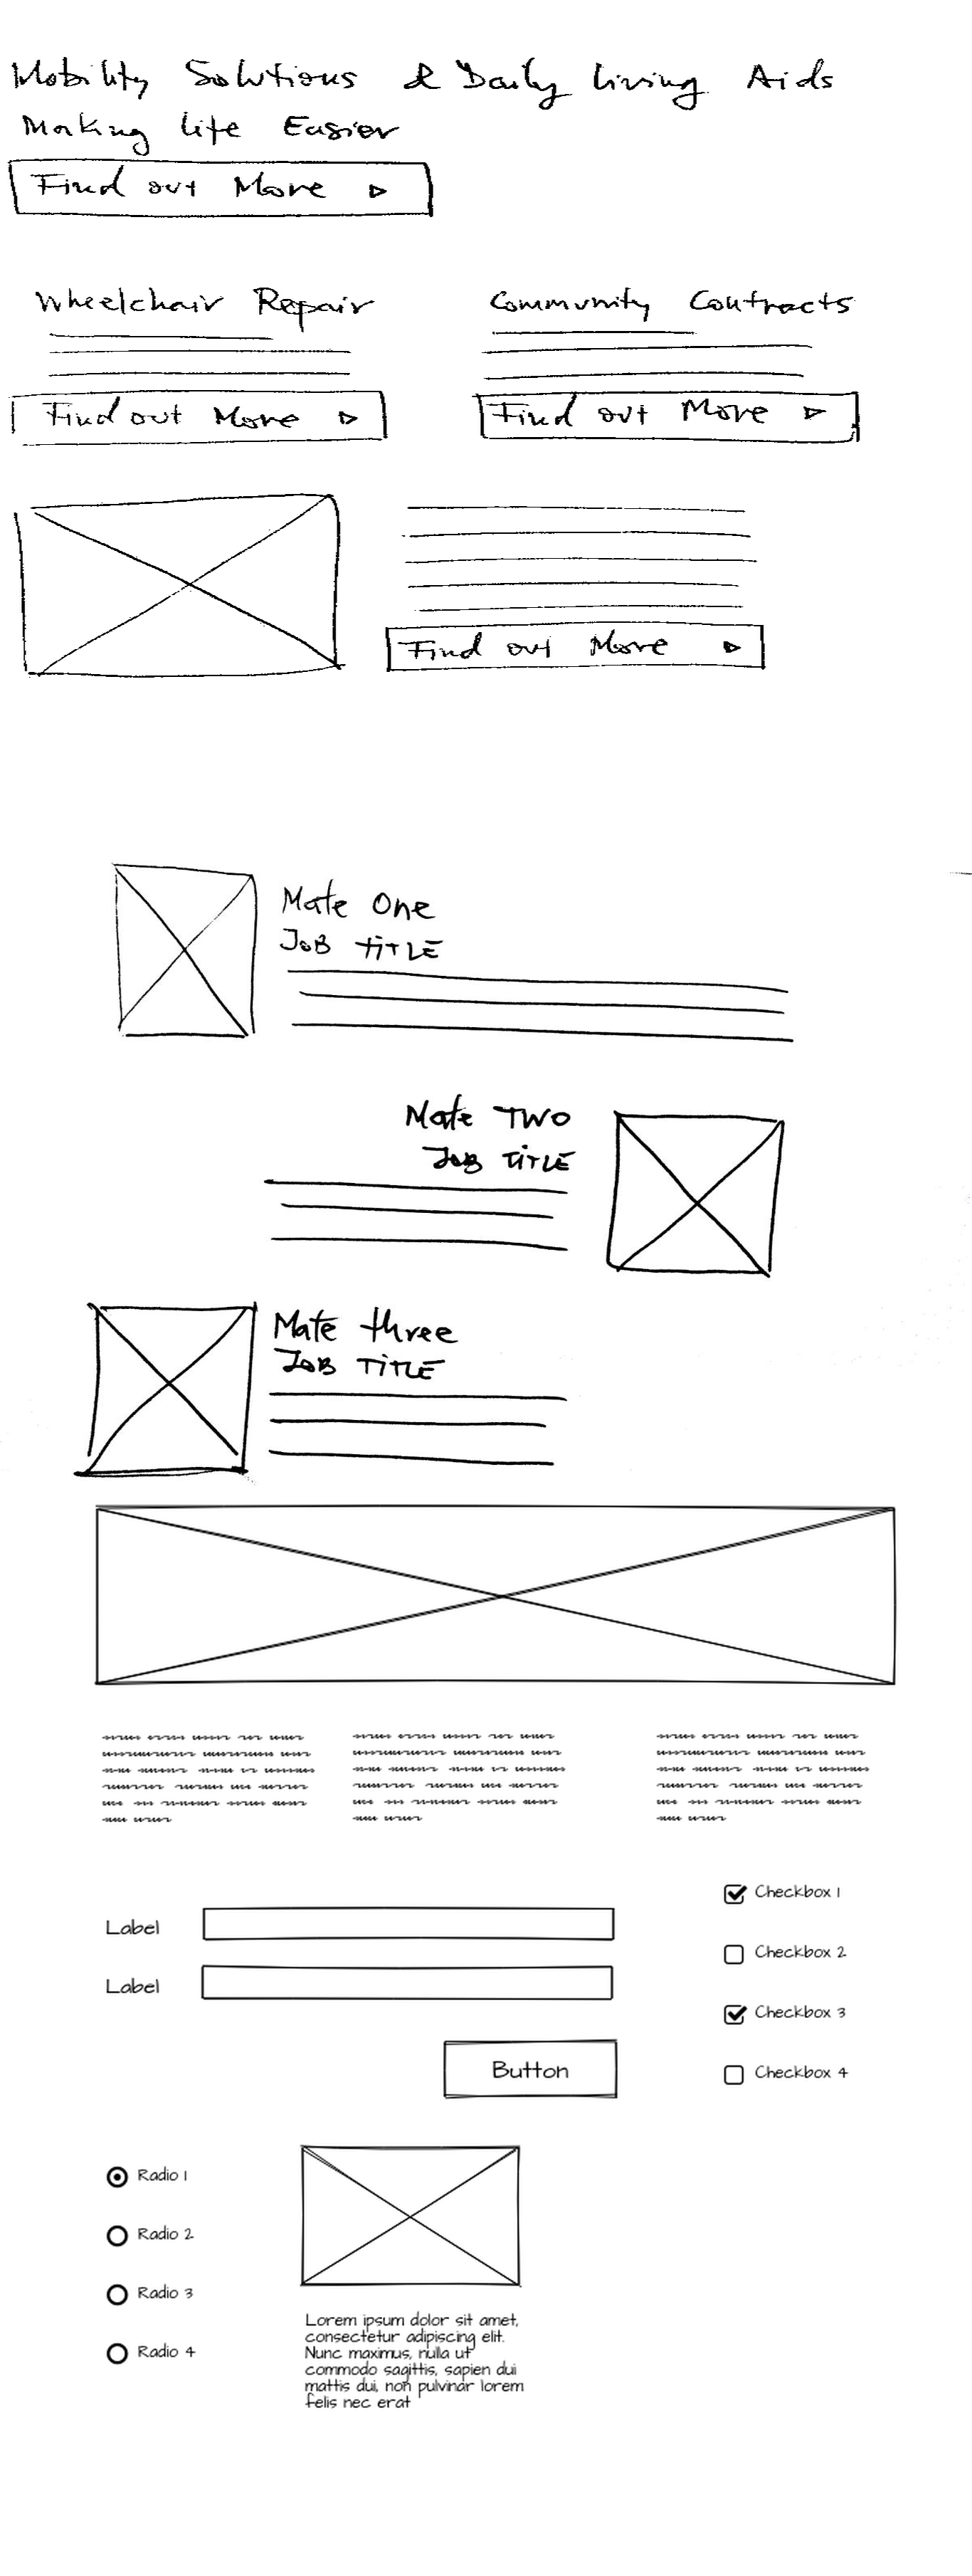 Mobility Solutions & Daily Living Aids
Making life Easier
Find out More
Wheelchair Repair
Community Contracts
Find out More
Find out More
Find out More
Mate One
JOB TITLE
Mate TWO
JOB TITLE
Mate three
JOB TITLE
Label
Label
Button
Checkbox 1
Checkbox 2
Checkbox 3
Checkbox 4
Radio 1
Radio 2
Radio 3
Radio 4
Lorem ipsum dolor sit amet,
consectetur adipiscing elit.
Nunc maximus, nulla ut
commodo sagittis, sapien dui
mattis dui, non pulvinar lorem
felis nec erat